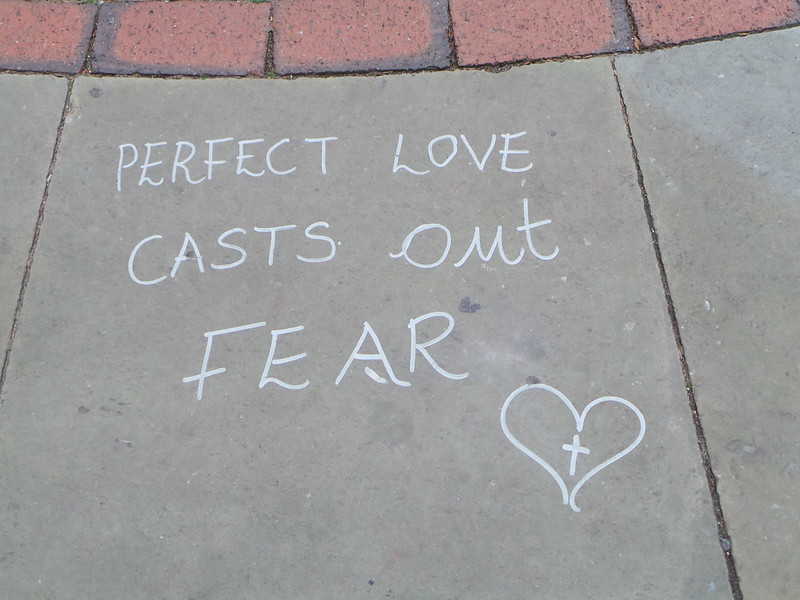 PERFECT LOVE
CASTS OUt
FEAR